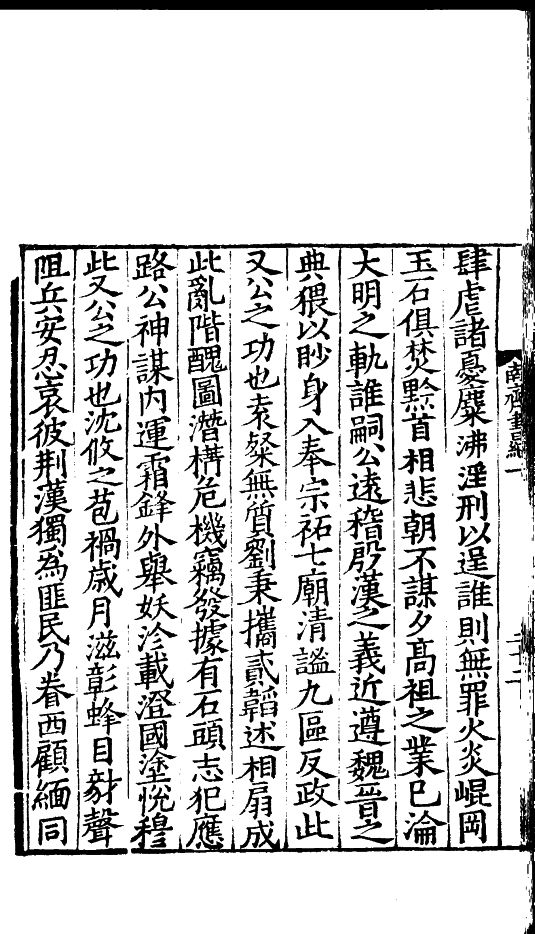 肆虐諸憂麋沸淫刑以逞誰則無罪火炎崐岡
玉石俱焚黔首相悲朝不謀夕髙祖之業已淪
大明之軌誰嗣公遠稽殷漢之義近遵魏晉之
典猥以眇身入奉宗祏七廟清謐九區反政此
又公之功也袁粲無質劉秉攜貳韜述相扇成
此亂階醜圖潛構危機竊發據有石頭志犯應
路公神謀内運霜鋒外舉妖沴載澄國塗恱穆
此又公之功也沈攸之苞禍歳月滋彰蜂目豺聲
阻兵安忍哀彼荆漢獨為匪民乃眷西顧緬同
南齊書紀一
二十二